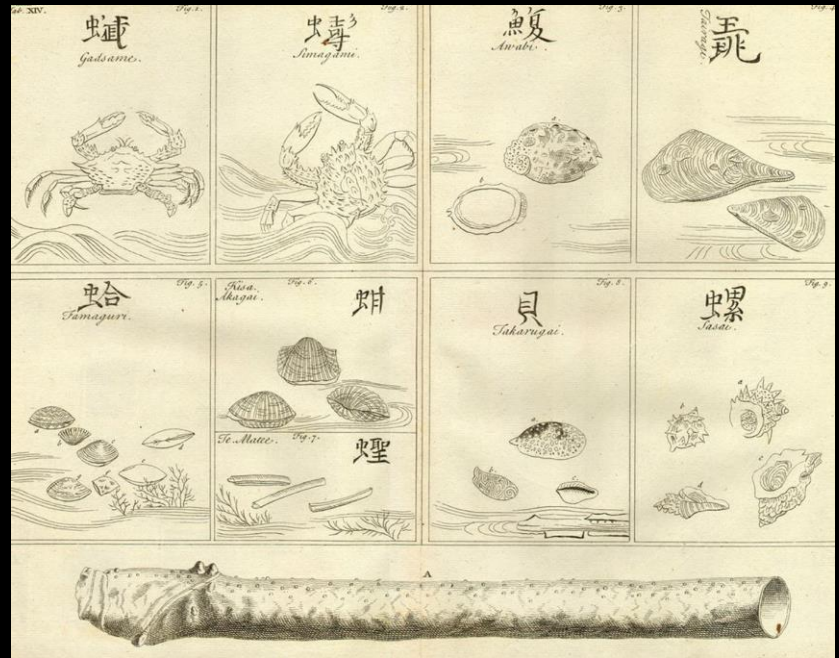 Tab. XIV.
Fig. 1.
Gadsame.
Fig. 2.
Simagami.
Fig. 3.
鰒
Awabi.
a
b
Fig. 4
Tairagi.
Fig. 5.
蛤
Famaguri.
a
b
c
d
Fig. 6.
Kisa.
Akagai.
蚶
Fig. 7.
Te. Matee.
蟶
Fig. 8.
貝
Takarugai.
a
b
c
Fig. 9.
螺
Sasai.
a
b
c
d
A